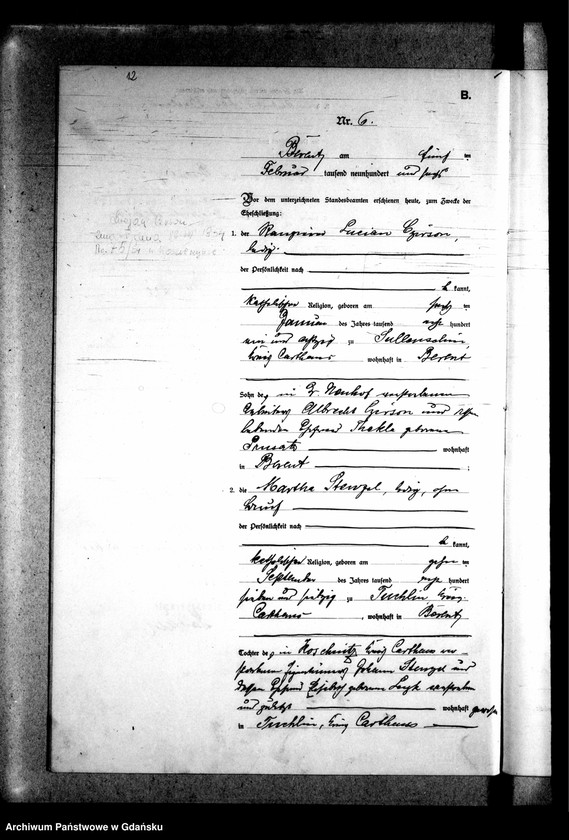 12
B.
Nr. 6.
Berent am fünf ten
Februar tausend neunhundert und sechs
Vor dem unterzeichneten Standesbeamten erschienen heute, zum Zwecke der
Eheschließung:
1. der Lucian Czirson,
ledig
der Persönlichkeit nach
kannt,
katholischer Religion, geboren am sechs ten
Januar des Jahres tausend acht hundert
ein und achtzig zu Sullenschin,
Kreis Carthaus wohnhaft in Berent
Sohn des in Gr. Neuhof verstorbenen
Albrecht Czirson und
lebenden Ehefrau Thekla geborene
wohnhaft
in Berent ;
2. die Martha Stenzel, ledig, ohne
Beruf
der Persönlichkeit nach
kannt,
katholischer Religion, geboren am ten
September des Jahres tausend acht hundert
sieben und siebzig zu Tuchlin Kreis
Carthaus , wohnhaft in Berent
Tochter des in Kreis Carthaus ver-
storbenen Eigentümers Johann Stenzel und
dessen Ehefrau geborene verstorben
und zuletzt wohnhaft gewesen
in Tuchlin, Kreis Carthaus
Archiwum Państwowe w Gdańsku